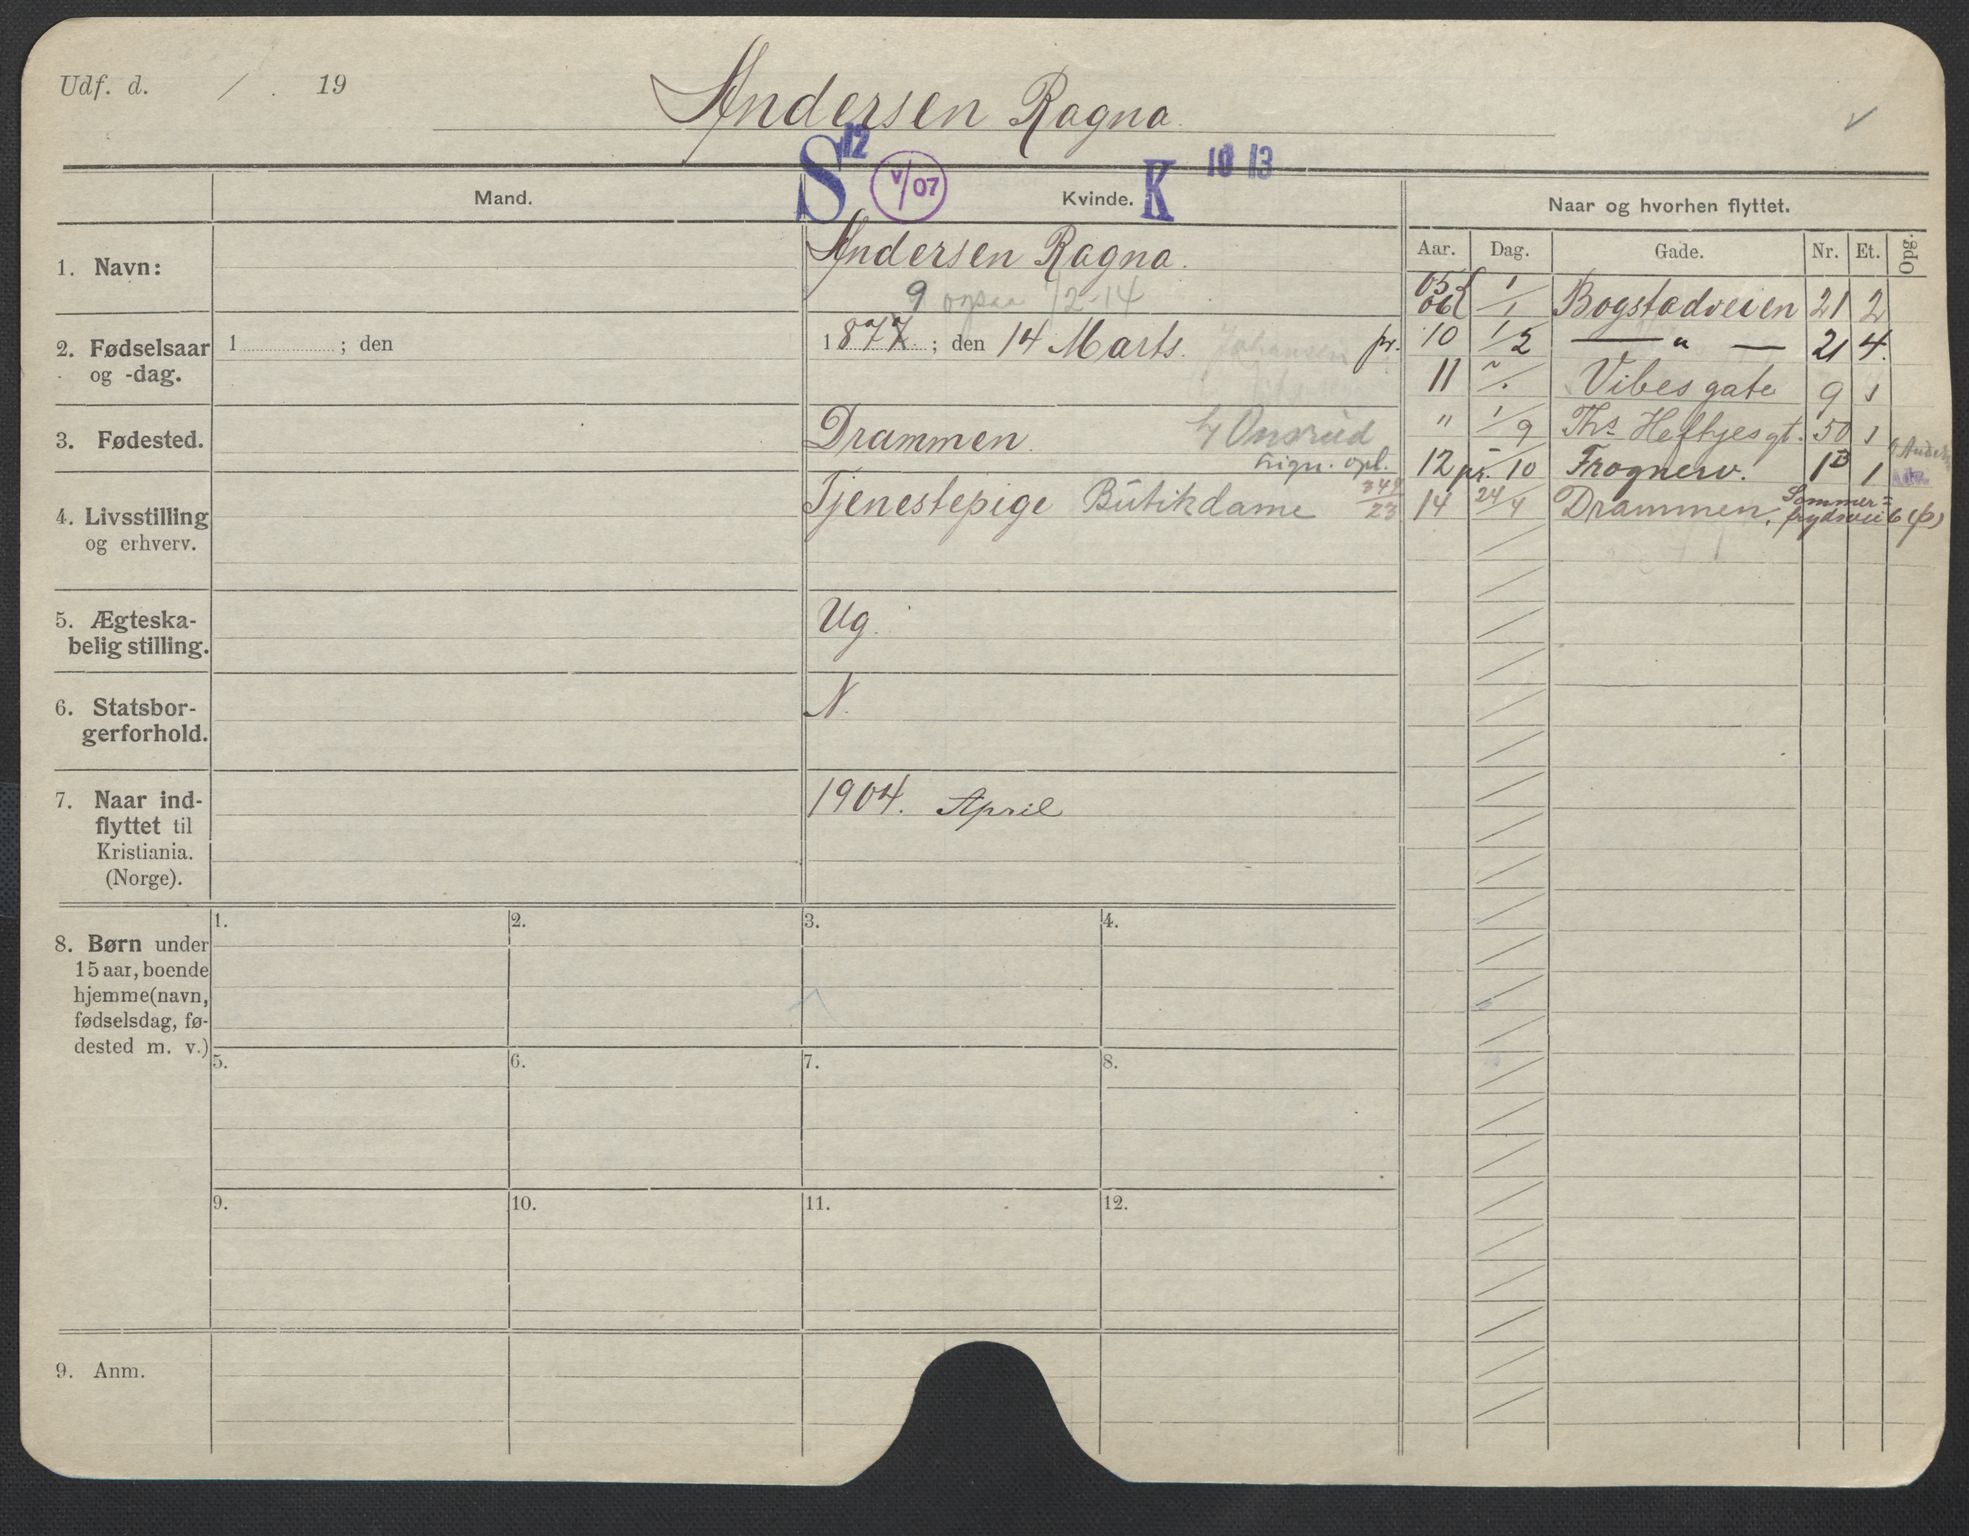 Udf. d. / . 19
Andersen Ragna.
S 12 V/07 K 10 13
Mand. Kvinde. Naar og hvorhen flyttet.
Aar. Dag. Gade. Nr. Et. Opg.
1. Navn: Andersen Ragna.
9 ogsaa 12-14
2. Fødselsaar og -dag. 1 ; den
1877; den 14 Marts. Johansen
3. Fødested. Drammen. Onsrud
opl.
4. Livsstilling og erhverv. Tjenestepige Butikdame 349/23
5. Ægteska-
belig stilling. Ug.
6. Statsbor-
gerforhold. N.
7. Naar ind-
flyttet til
Kristiania.
(Norge).
1904. April
8. Børn under
15 aar, boende
hjemme (navn,
fødselsdag, fø-
dested m. v.)
1. 2. 3. 4.
5. 6. 7. 8.
9. 10. 11. 12.
9. Anm.
05 1/
06 /1 Bogstadveien 21 2
pr. 10 1/2 — " — 21 4.
11 Vibes gate 9 1
" 1/9 Ths Heftyes gt. 50 1
12 pr. /10 Frognerv. 1B 1
14 24/4 Drammen. Sommer=
frydsvei 6 (p)